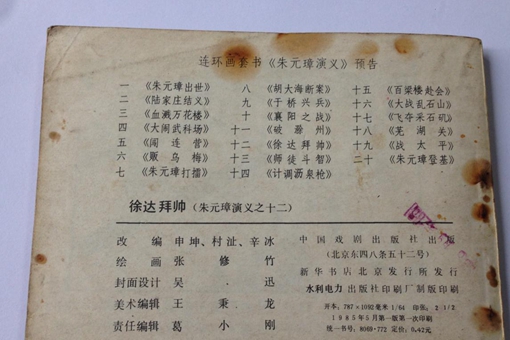 连环画套书《朱元璋演义》预告
一 《朱元璋出世》 八 《胡大海断案》 十五 《百梁楼赴会》
二 《陆家庄结义》 九 《于桥兴兵》 十六 《大战乱石山》
三 《血溅万花楼》 十 《襄阳之战》 十七 《飞夺采石矶》
四 《大闹武科场》 十一 《破滁州》 十八 《芜湖关》
五 《闯连营》 十二 《徐达拜帅》 十九 《战太平》
六 《贩乌梅》 十三 《师徒斗智》 二十 《朱元璋登基》
七 《朱元璋打擂》 十四 《计调沥泉枪》
徐达拜帅(朱元璋演义之十二)
改编 申坤、村沚、辛冰
绘画 张修竹
封面设计 吴迅
美术编辑 王秉龙
责任编辑 葛小刚
中国戏剧出版社出版
(北京东四八条五十二号)
新华书店北京发行所发行
水利电力出版社印刷厂制版印刷
开本:787×1092毫米1/64 印张:2 3/2
1985年5月第一版第一次印刷
统一书号:8069·772 定价:0.42元